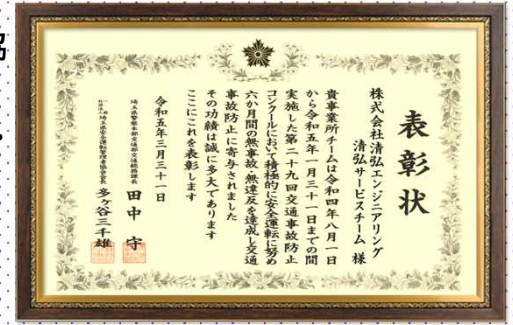 協
表彰状
株式会社清弘エンジニアリング
清弘サービスチーム 様
貴事業所チームは令和四年八月一日
から令和五年一月三十一日までの間
実施した第二十九回交通事故防止
コンクールにおいて積極的に安全運転に努め
六か月間の無事故・無違反を達成し交通
事故防止に寄与されました
その功績は誠に多大であります
ここにこれを表彰します
令和五年三月三十一日
埼玉県警察本部交通部交通総務課長 田中 守
埼玉県安全運転管理者協会会長 多ヶ谷三千雄